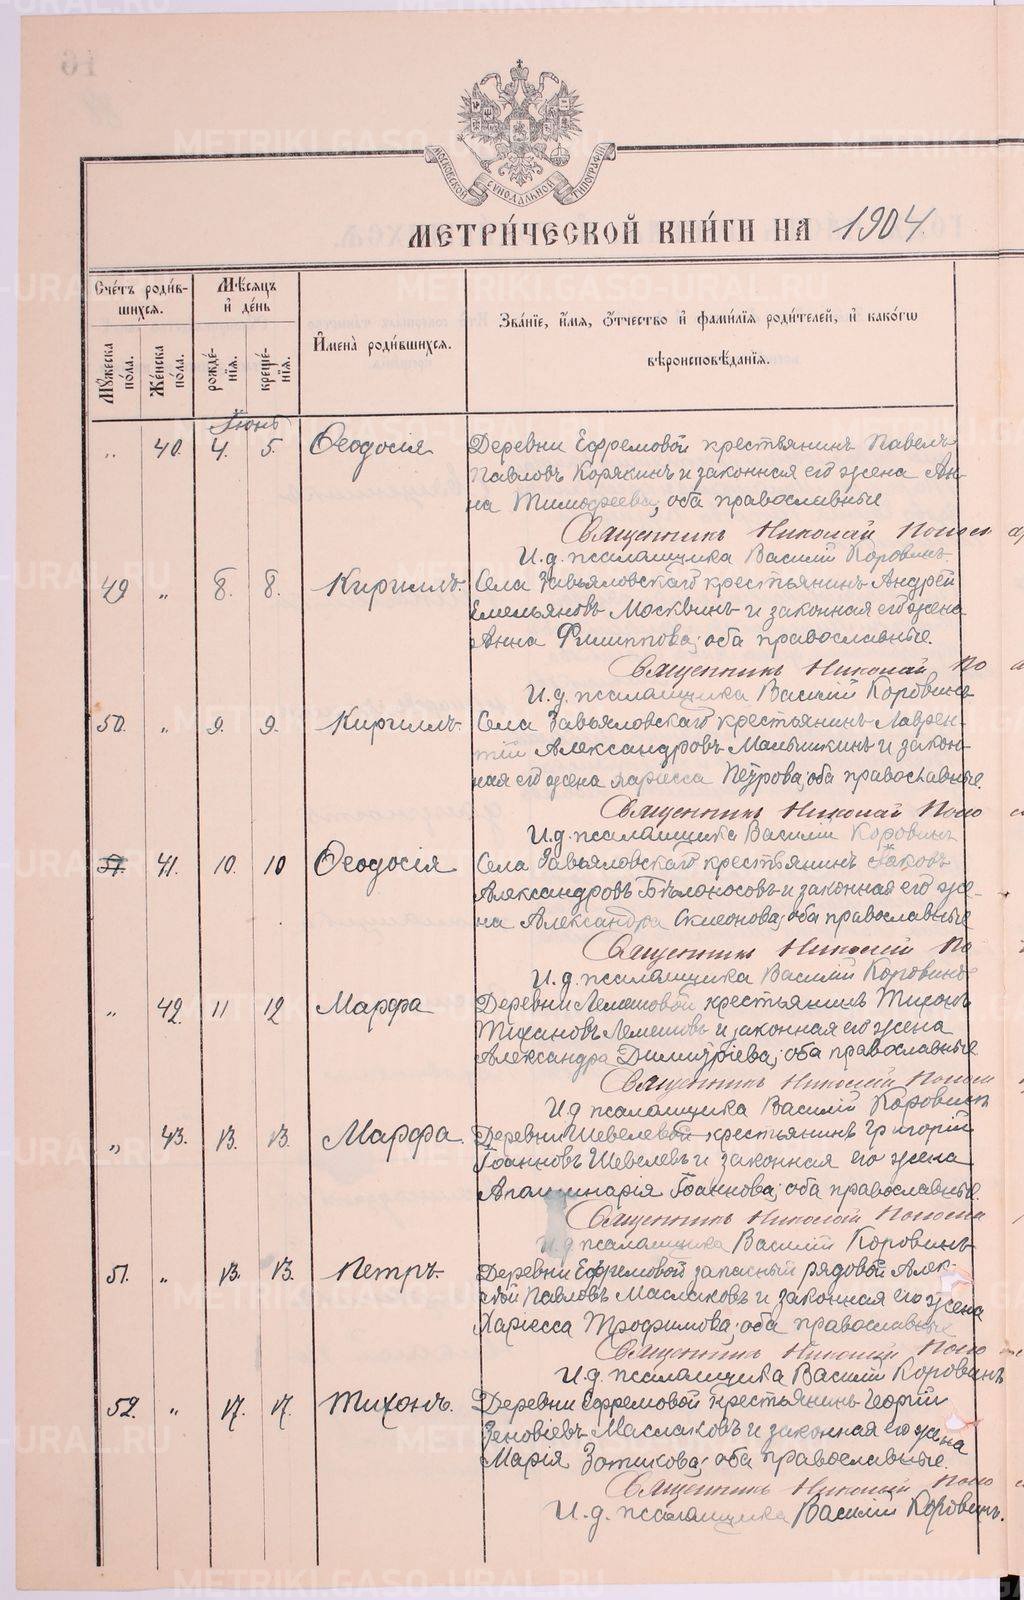 МОСКОВСКОЙ СѴНОДАЛЬНОЙ ТИПОГРАФІИ
МЕТРИ́ЧЕСКОЙ КНИ́ГИ НА 1904.
Сче́тъ роди́в-
шихся.
Мѣ́сяцъ
и҆ де́нь
И҆мена̀ роди́вшихся.
Зва́нїе, и҆́мя, ѻ҆́тчество и҆ фами́лїя роди́телей, и҆ како́гѡ
вѣроисповѣ́данїя.
Мꙋ́жеска по́ла.
Же́нска по́ла.
рожде́-
нїя.
креще́-
нїя.
Іюнь
„ 40. 4. 5. Ѳеодосія Деревни Ефремовой крестьянинъ Павелъ
Павловъ Корякинъ и законная его жена Ан-
на Тимофеева, оба православные
Священникъ Николай
И.д. псаломщика Василій Коровинъ
49 „ 8. 8. Кириллъ. Села Завьяловскаго крестьянинъ Андрей
Емельяновъ Москвинъ и законная его жена
Анна Филиппова; оба православные.
Священникъ Николай По
И.д. псаломщика Василій Коровинъ
50. „ 9. 9. Кириллъ. Села Завьяловскаго крестьянинъ Лаврен-
тій Александровъ Малышкинъ и закон-
ная его жена Ларисса Петрова; оба православные.
Священникъ Николай
И.д. псаломщика Василій Коровинъ
51. 41. 10. 10 Ѳеодосія Села Завьяловскаго крестьянинъ Іаковъ
Александровъ Бѣлоносовъ и законная его же-
на Александра Симонова; оба православные
Священникъ Николай По
И.д. псаломщика Василій Коровинъ
„ 42. 11 12 Марфа Деревни Лемешовой крестьянинъ Тихонъ
Тихановъ Лемешовъ и законная его жена
Александра Димитріева; оба православные
Священникъ Николай
И.д псаломщика Василій Коровинъ
„ 43. 13. 13. Марфа. Деревни Шевелевой крестьянинъ Григорій
Іоанновъ Шевелевъ и законная его жена
Аполлинарія Іоаннова; оба православные.
Священникъ Николай
И.д псаломщика Василій Коровинъ
51. „ 13. 13. Петръ. Деревни Ефремовой запасный рядовой Алек-
сѣй Павловъ Маслаковъ и законная его жена
Ларисса Трофимова; оба православные
Священникъ Николай
И.д. псаломщика Василій Коровинъ
52. „ 17. 17. Тихонъ. Деревни Ефремовой крестьянинъ Георгій
Зеновіевъ Маслаковъ и законная его жена
Марія Зотикова; оба православные.
Священникъ Николай
И.д. псаломщика Василій Коровинъ.
METRIKI.GASO-URAL.RU